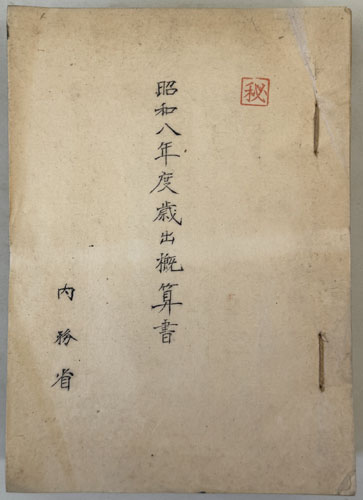 秘
昭和八年度歳出概算書
内務省